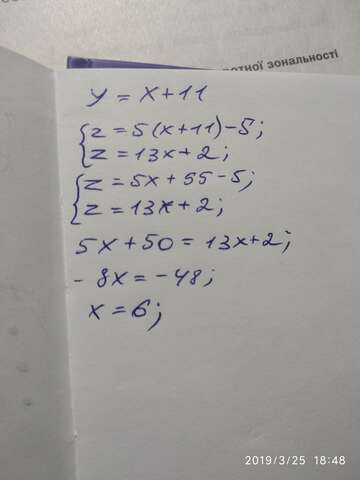 отної зональності
y = x + 11
z = 5(x+11)-5;
z = 13x+2;
z = 5x + 55 - 5;
z = 13x + 2;
5x + 50 = 13x+2;
- 8x = -48;
x = 6;
2019/3/25 18:48